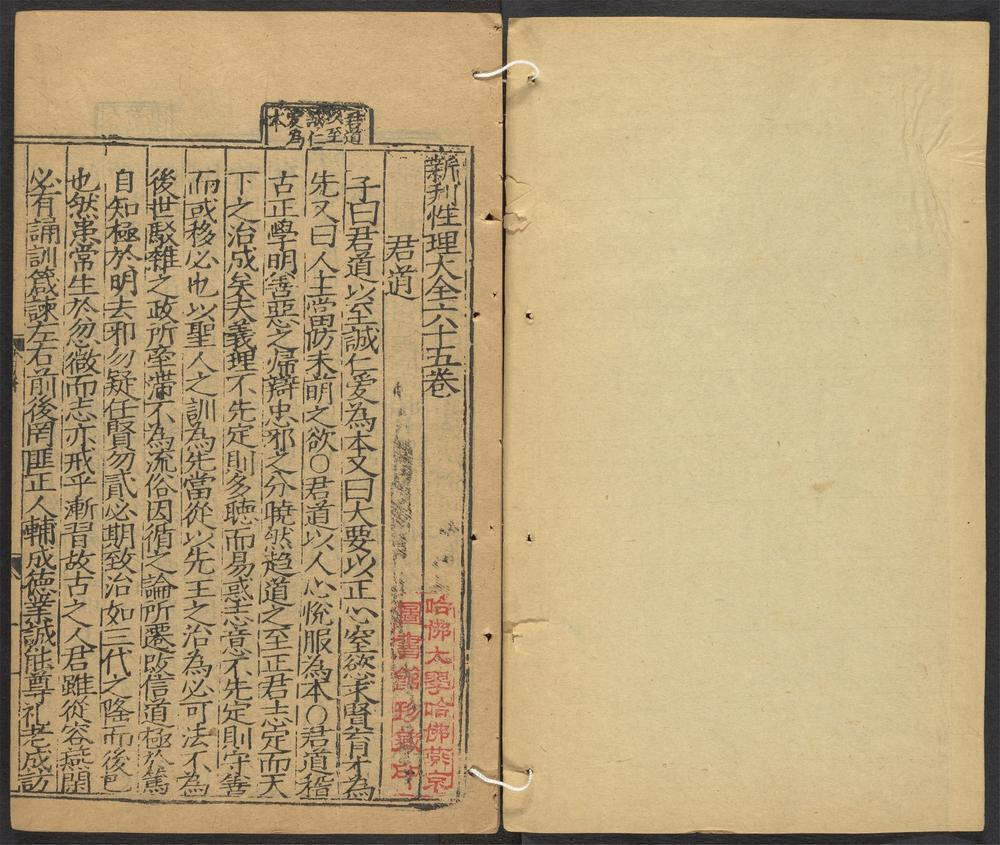 君道
以至
誠仁
愛為
本
新刋性理大全六十五卷
君道
子曰君道以至誠仁爱為本又曰大要以正心窒慾求賢育才為
先又曰人主當防未萌之欲○君道以人心悅服為本○君道稽
古正學明善惡之帰辯忠邪之分曉然趋道之至正君志定而天
下之治成矣夫義理不先定則多聴而易惑志意不先定則守善
而或移必也以聖人之訓為先當從以先王之治為必可法不為
後世駁雜之政所牽滯不為流俗因循之論所遷改信道極於篤
自知極於明去邪勿疑任賢勿貳必期致治如三代之隆而後已
也然患常生於忽微而志亦戒乎漸習故古之人君雖從容燕閒
必有誦訓箴諫左右前後罔匪正人輔成德業誠能尊礼老成訪
哈佛大學哈佛燕京
圖書館珍藏印